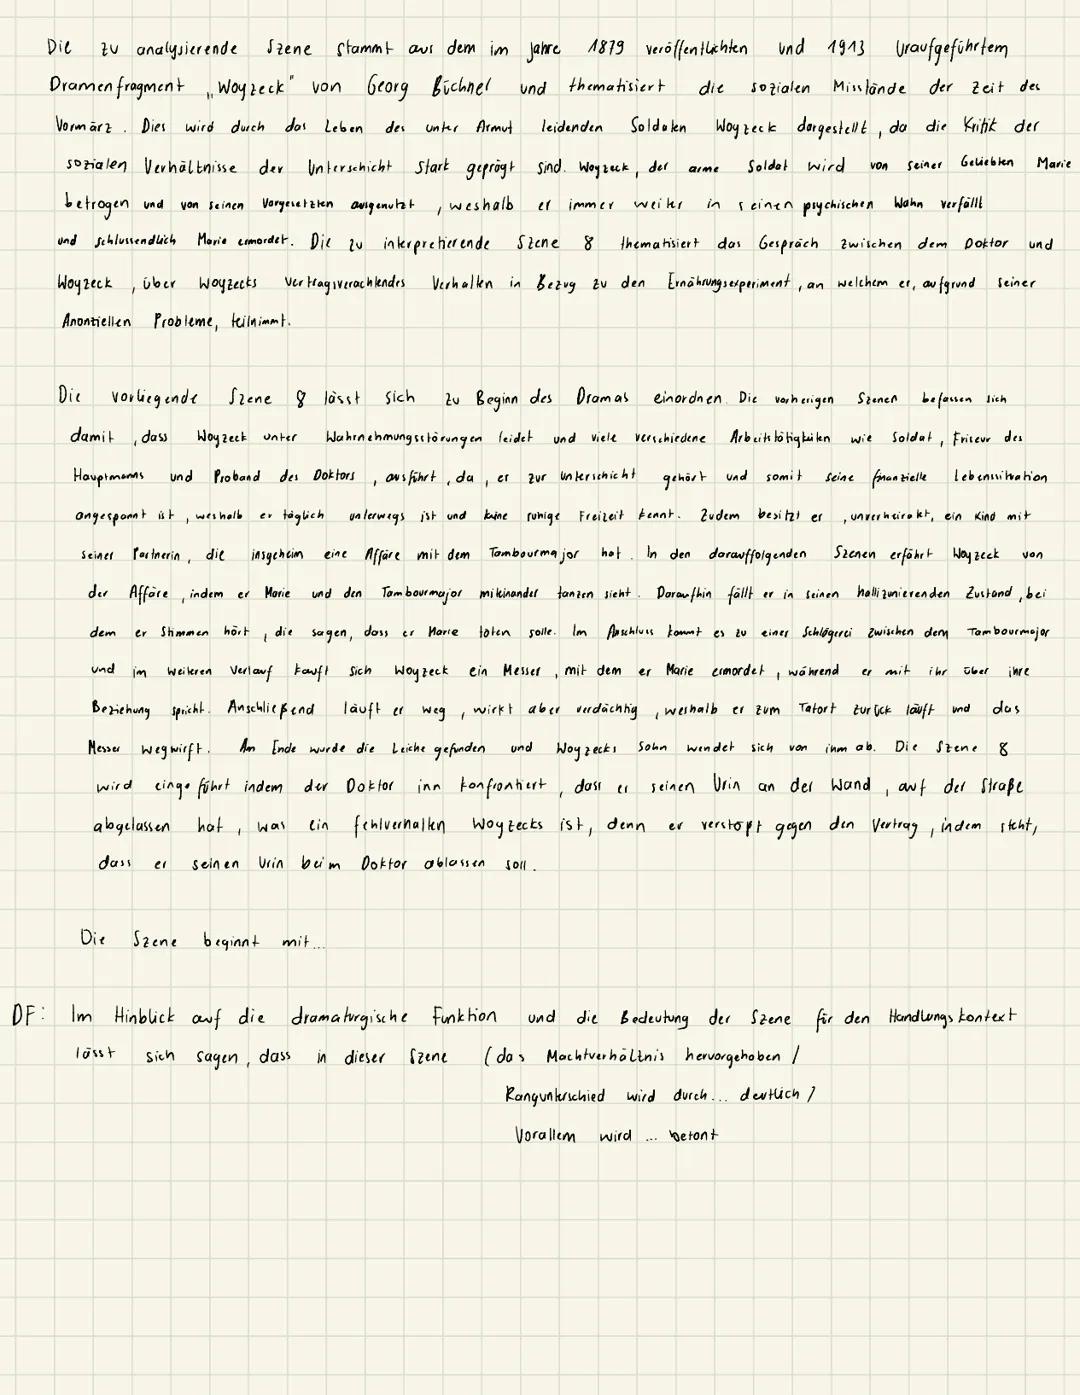 Die zu analysierende Szene stammt aus dem im Jahre 1879 veröffentlichten und 1913 Uraufgeführtem
Dramenfragment „Woyzeck" von Georg Büchner und thematisiert die sozialen Missstände der Zeit des
Vormärz. Dies wird durch das Leben des unter Armut leidenden Soldaten Woyzeck dargestellt, da die Kritik der
sozialen Verhältnisse der Unterschicht stark geprägt sind. Woyzeck, der arme Soldat wird von seiner Geliebten Marie
betrogen und von seinen Vorgesetzten ausgenutzt, weshalb er immer weiter in seinen psychischen Wahn verfällt
und schlussendlich Marie ermordet. Die zu interpretierende Szene 8 thematisiert das Gespräch zwischen dem Doktor und
Woyzeck, über Woyzecks vertragsverachtendes Verhalten in Bezug zu den Ernährungsexperiment, an welchem er, aufgrund seiner
finanziellen Probleme, teilnimmt.
Die vorliegende Szene 8 lässt sich zu Beginn des Dramas einordnen. Die vorherigen Szenen befassen sich
damit, dass Woyzeck unter Wahrnehmungsstörungen leidet und viele verschiedene Arbeitstätigkeiten wie Soldat, Friseur des
Hauptmanns und Proband des Doktors, ausführt, da, er zur Unterschicht gehört und somit seine finanzielle Lebenssituation
angespannt ist, weshalb er täglich unterwegs ist und keine ruhige Freizeit kennt. Zudem besitzt er, unverheiratet, ein Kind mit
seiner Partnerin, die insgeheim eine Affäre mit dem Tambourmajor hat. In den darauffolgenden Szenen erfährt Woyzeck von
der Affäre, indem er Marie und den Tambourmajor miteinander tanzen sieht. Daraufhin fällt er in seinen hallizunierenden Zustand, bei
dem er Stimmen hört, die sagen, dass er Marie töten solle. Im Anschluss kommt es zu einer Schlägerei zwischen dem Tambourmajor
und im weiteren Verlauf kauft sich Woyzeck ein Messer, mit dem er Marie ermordet, während er mit ihr über ihre
Beziehung spricht. Anschließend läuft er weg, wirkt aber verdächtig, weshalb er zum Tatort zurück läuft und das
Messer wegwirft. Am Ende wurde die Leiche gefunden und Woyzecks Sohn wendet sich von ihm ab. Die Szene 8
wird eingeführt indem der Doktor inn konfrontiert, dass er seinen Urin an der Wand, auf der Straße
abgelassen hat, was ein fehlverhalten Woyzecks ist, denn er verstöpt gegen den Vertrag, indem steht,
dass er seinen Urin beim Doktor ablassen soll.
Die Szene beginnt mit...
DF: Im Hinblick auf die dramaturgische Funktion und die Bedeutung der Szene für den Handlungskontext
lässt sich sagen, dass in dieser Szene (das Machtverhältnis hervorgehoben /
Rangunterschied wird durch... deutlich /
Vorallem wird ... betont